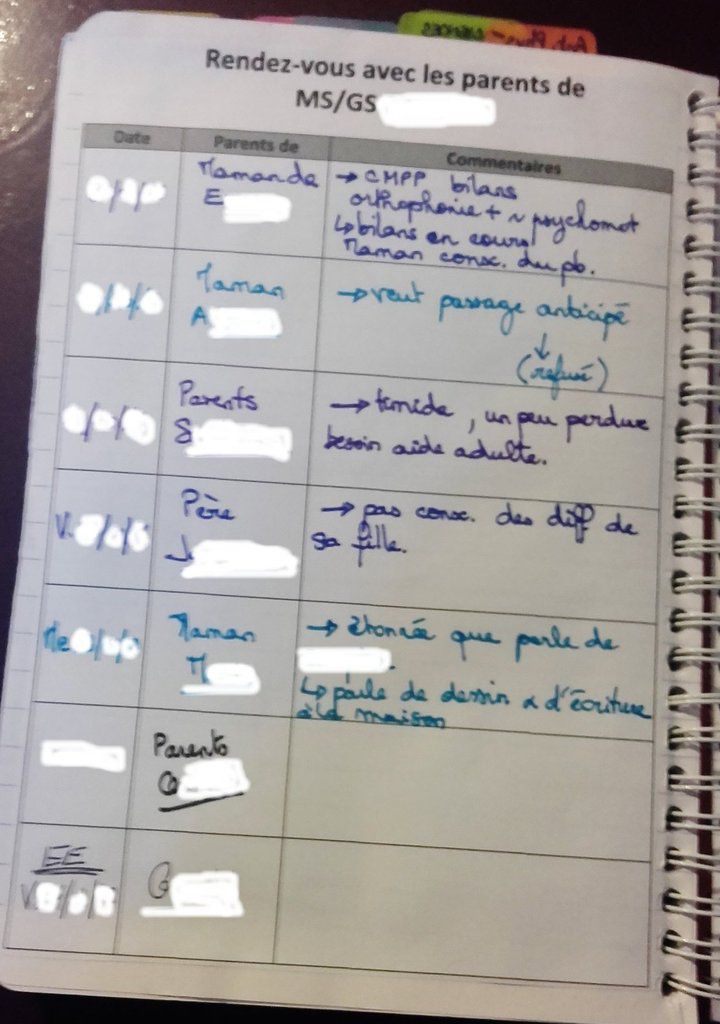 Rendez-vous avec les parents de
MS/GS
Date Parents de Commentaires
Maman de
E
→ CMPP bilans
orthophonie + ~ psychomot
↳ bilans en cours
Maman consc. du pb.
Maman
A
→ veut passage anticipé
↓
(refusé)
Parents
S
→ timide, un peu perdue
besoin aide adulte.
V.
Père
J
→ pas consc. des diff de
sa fille.
Me
Maman
M
→ étonnée que parle de
.
↳ parle de dessin & d'écriture
à la maison
Parents
EE
V.